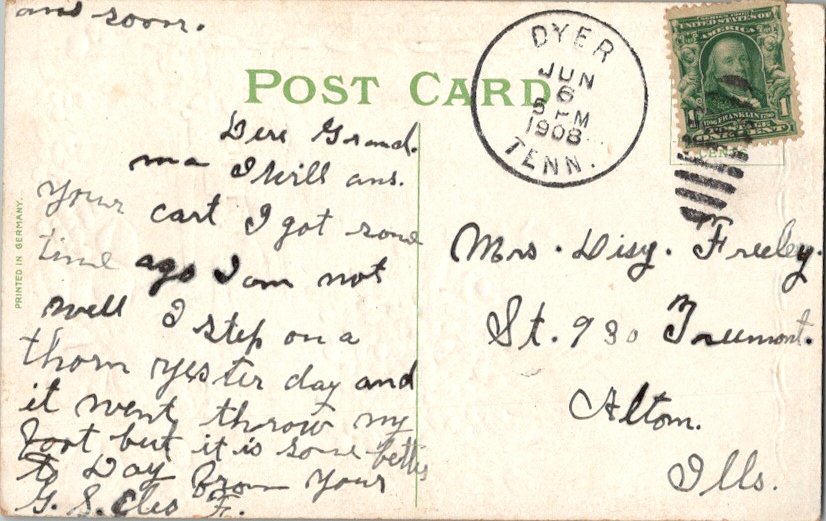 ans soon.
POST CARD
DYER
JUN
6
5 PM
1908
TENN.
UNITED STATES OF
AMERICA
FRANKLIN
1
Dere Grand.
ma I Will ans.
your cart I got some
time ago I am not
well I step on a
thorn yester day and
it went throw my
foot but it is some better
to Day From your
G. S. Cleo F.
Mrs. Disy. Freeley.
St. 930 Treemont.
Alton.
Ills.
PRINTED IN GERMANY.